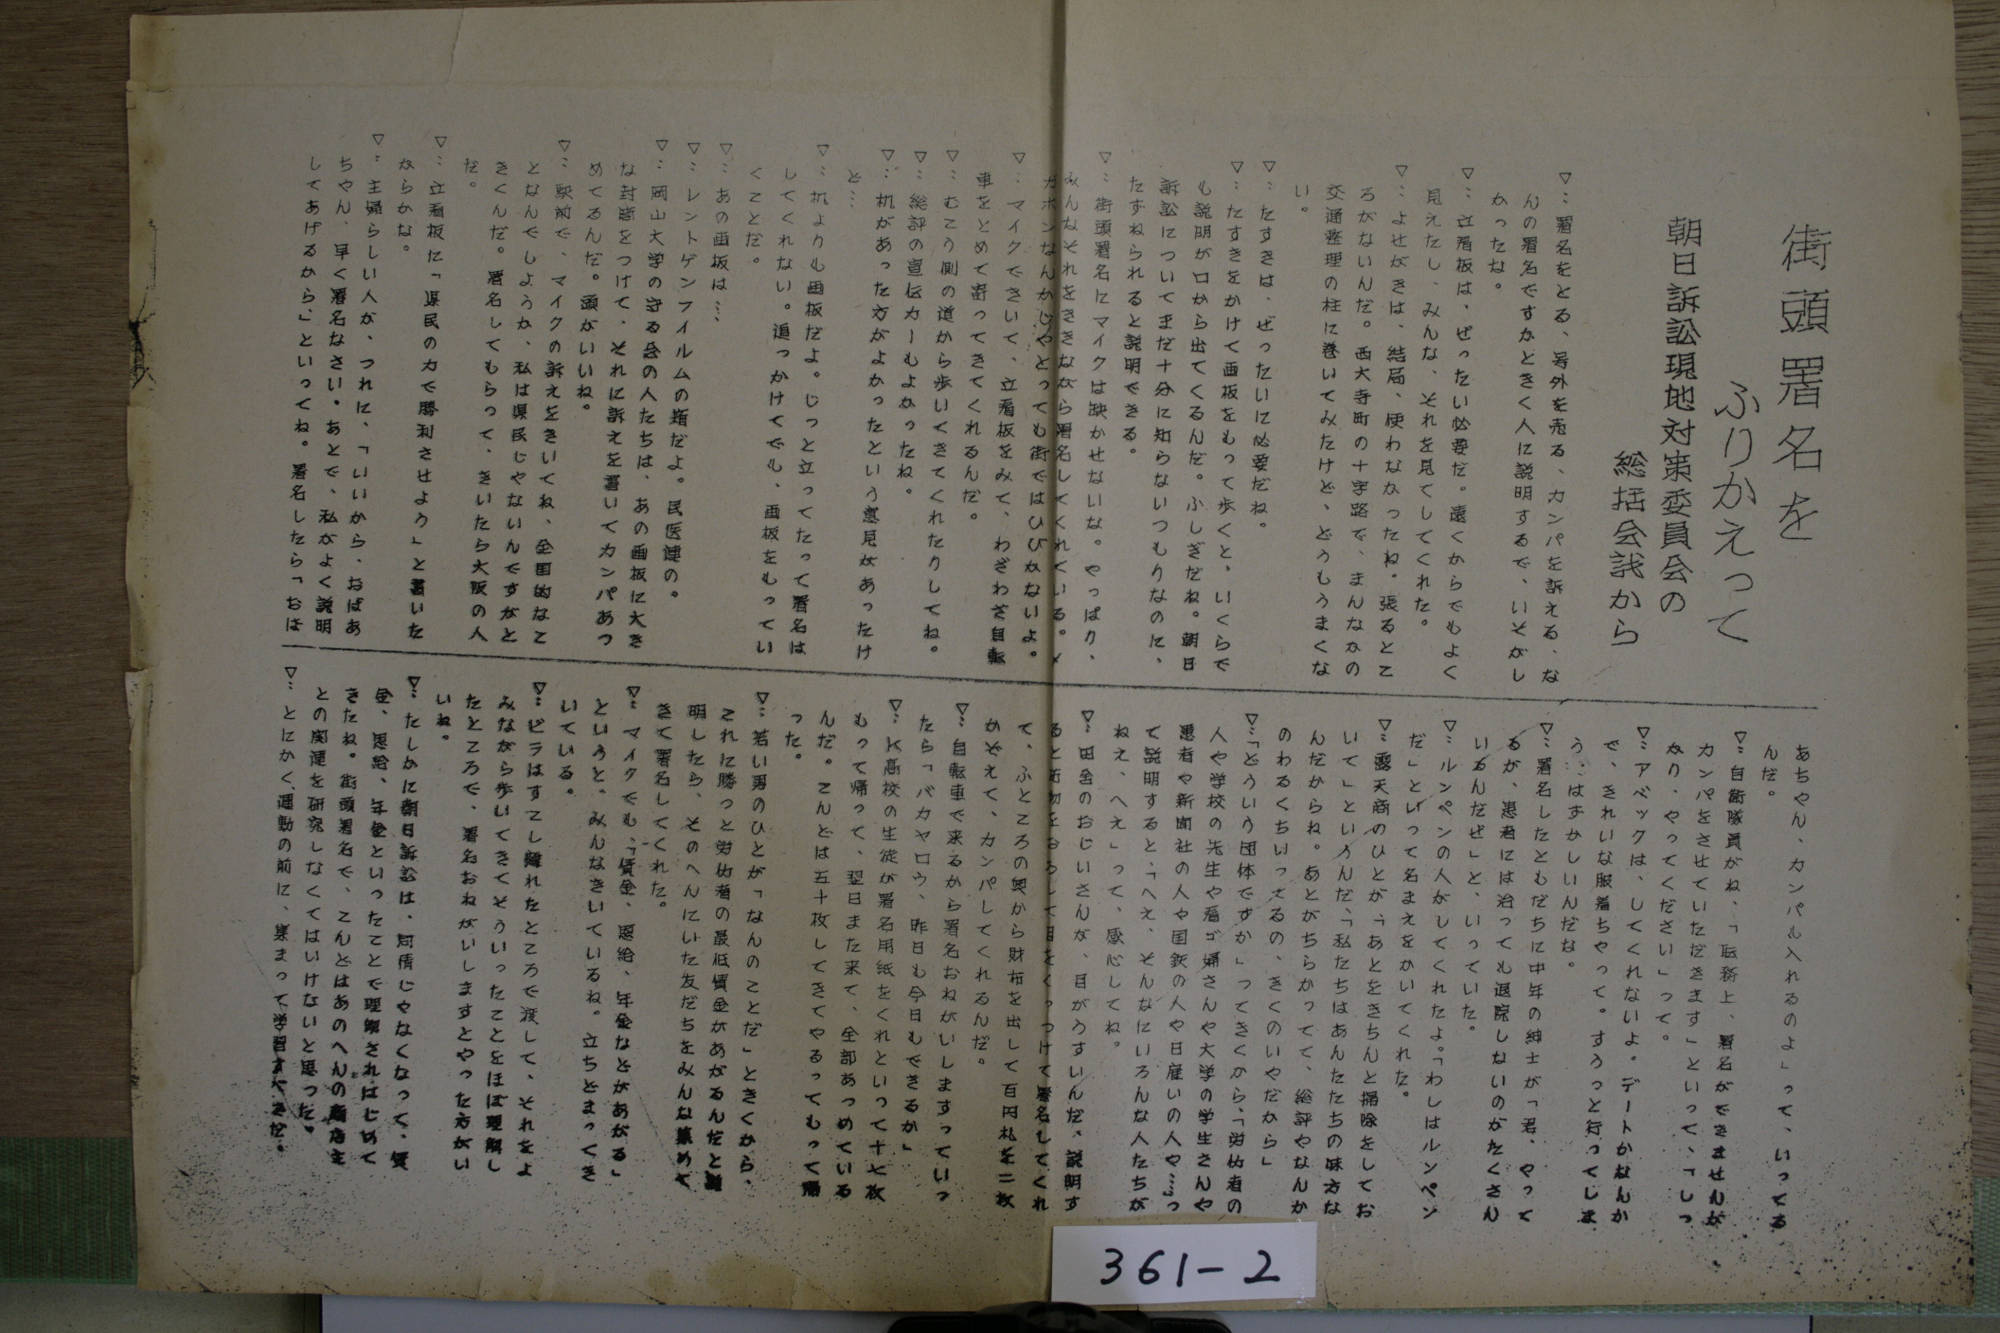 街頭署名を
ふりかえって
朝日訴訟現地対策委員会の
総括会議から
▽…署名をとる、号外を売る、カンパを訴える、な
んの署名ですかときく人に説明するで、いそがし
かったな。
▽…立看板は、ぜったい必要だ。遠くからでもよく
見えたし、みんな、それを見てしてくれた。
▽…よせがきは、結局、使わなかったね。張るとこ
ろがないんだ。西大寺町の十字路で、まんなかの
交通整理の柱に巻いてみたけど、どうもうまくな
い。
▽…たすきは、ぜったいに必要だね。
▽…たすきをかけて画板をもって歩くと、いくらで
も説明が口から出てくるんだ。ふしぎだね。朝日
訴訟についてまだ十分に知らないつもりなのに、
たずねられると説明できる。
▽…街頭署名にマイクは欠かせないな。やっぱり、
みんなそれをききながら署名してくれている。メ
ガホンなんかじゃとっても街ではひびかないよ。
▽…マイクできいて、立看板をみて、わざわざ自転
車をとめて寄ってきてくれるんだ。
▽…むこう側の道から歩いてきてくれたりしてね。
▽…総評の宣伝カーもよかったね。
▽…机があった方がよかったという意見があったけ
ど…
▽…机よりも画板だよ。じっと立ってたって署名は
してくれない。追っかけてでも、画板をもってい
くことだ。
▽…あの画板は…
▽…レントゲンフイルムの箱だよ。民医連の。
▽…岡山大学の守る会の人たちは、あの画板に大き
な封筒をつけて、それに訴えを書いてカンパあつ
めてるんだ。頭がいいね。
▽…駅前で、マイクの訴えをきいてね、全国的なこ
となんでしょうか、私は県民じゃないんですがと
きくんだ。署名してもらって、きいたら大阪の人
だ。
▽…立看板に「県民の力で勝利させよう」と書いた
からかな。
▽…主婦らしい人が、つれに、「いいから、おばあ
ちゃん、早く署名なさい。あとで、私がよく説明
してあげるから、」といってね。署名したら「おば
あちゃん、カンパも入れるのよ」って、いってる
んだ。
▽…自衛隊員がね、「任務上、署名ができませんが
カンパをさせていただきます」といって、「しっ
かり、やってください」って。
▽…アベックは、してくれないよ。デートかなんか
で、きれいな服着ちゃって。すうっと行ってしま
う…はずかしいんだな。
▽…署名したともだちに中年の紳士が「君、やって
るが、患者には治っても退院しないのがたくさん
いるんだぜ」と、いっていた。
▽…ルンペンの人がしてくれたよ。「わしはルンペン
だ」といって名まえをかいてくれた。
▽…露天商のひとが「あとをきちんと掃除をしてお
いて」というんだ、「私たちはあんたたちの味方な
んだからね。あとがちらかってて、総評やなんか
のわるくちいってるの、きくのいやだから」
▽…「どういう団体ですか」ってきくから、「労仂者の
人や学校の先生や看ゴ婦さんや大学の学生さんや
患者や新聞社の人や国鉄の人や日雇いの人や……っ
て説明すると、「へえ、そんなにいろんな人たちが
ねえ、へえ」って、感心してね。
▽…田舎のおじいさんが、目がうすいんだ、説明す
ると荷物をおろして目をくっつけて署名してくれ
て、ふところの奥から財布を出して百円札を二枚
かぞえて、カンパしてくれるんだ。
▽…自転車で来るから署名おねがいしますっていっ
たら「バカヤロウ、昨日も今日もできるか」
▽…K高校の生徒が署名用紙をくれといって十七枚
もって帰って、翌日また来て、全部あつめている
んだ。こんどは五十枚してきてやるってもって帰
った。
▽…若い男のひとが「なんのことだ」ときくから、
これに勝つと労仂者の最低賃金があがるんだと説
明したら、そのへんにいた友だちをみんな集めて
きて署名してくれた。
▽…マイクでも、「賃金、恩給、年金などがあがる」
というと、みんなきいているね。立ちどまってき
いている。
▽…ビラはすこし離れたところで渡して、それをよ
みながら歩いてきてそういったことをほぼ理解し
たところで、署名おねがいしますとやった方がい
いね。
▽…たしかに朝日訴訟は、同情じゃなくなって、賃
金、恩給、年金といったことで理解されはじめて
きたね。街頭署名で、こんどはあのへんの商店主
との関連を研究しなくてはいけないと思った。
▽…とにかく、運動の前に、集まって学習すべきだ。
361-2